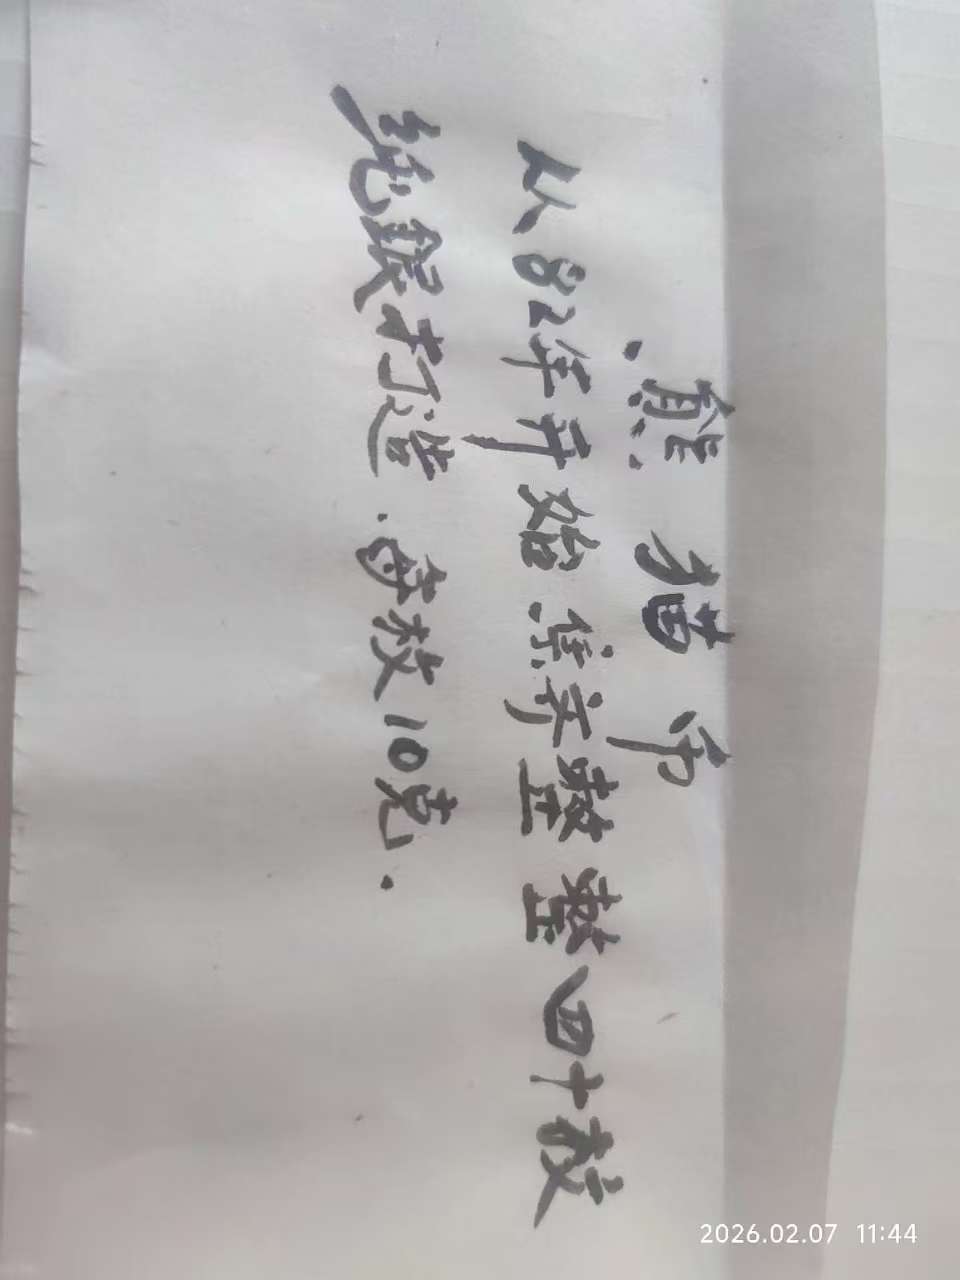 熊猫币
从82年开始集齐整整四十枚
纯銀打造.每枚10克.
2026.02.07 11:44